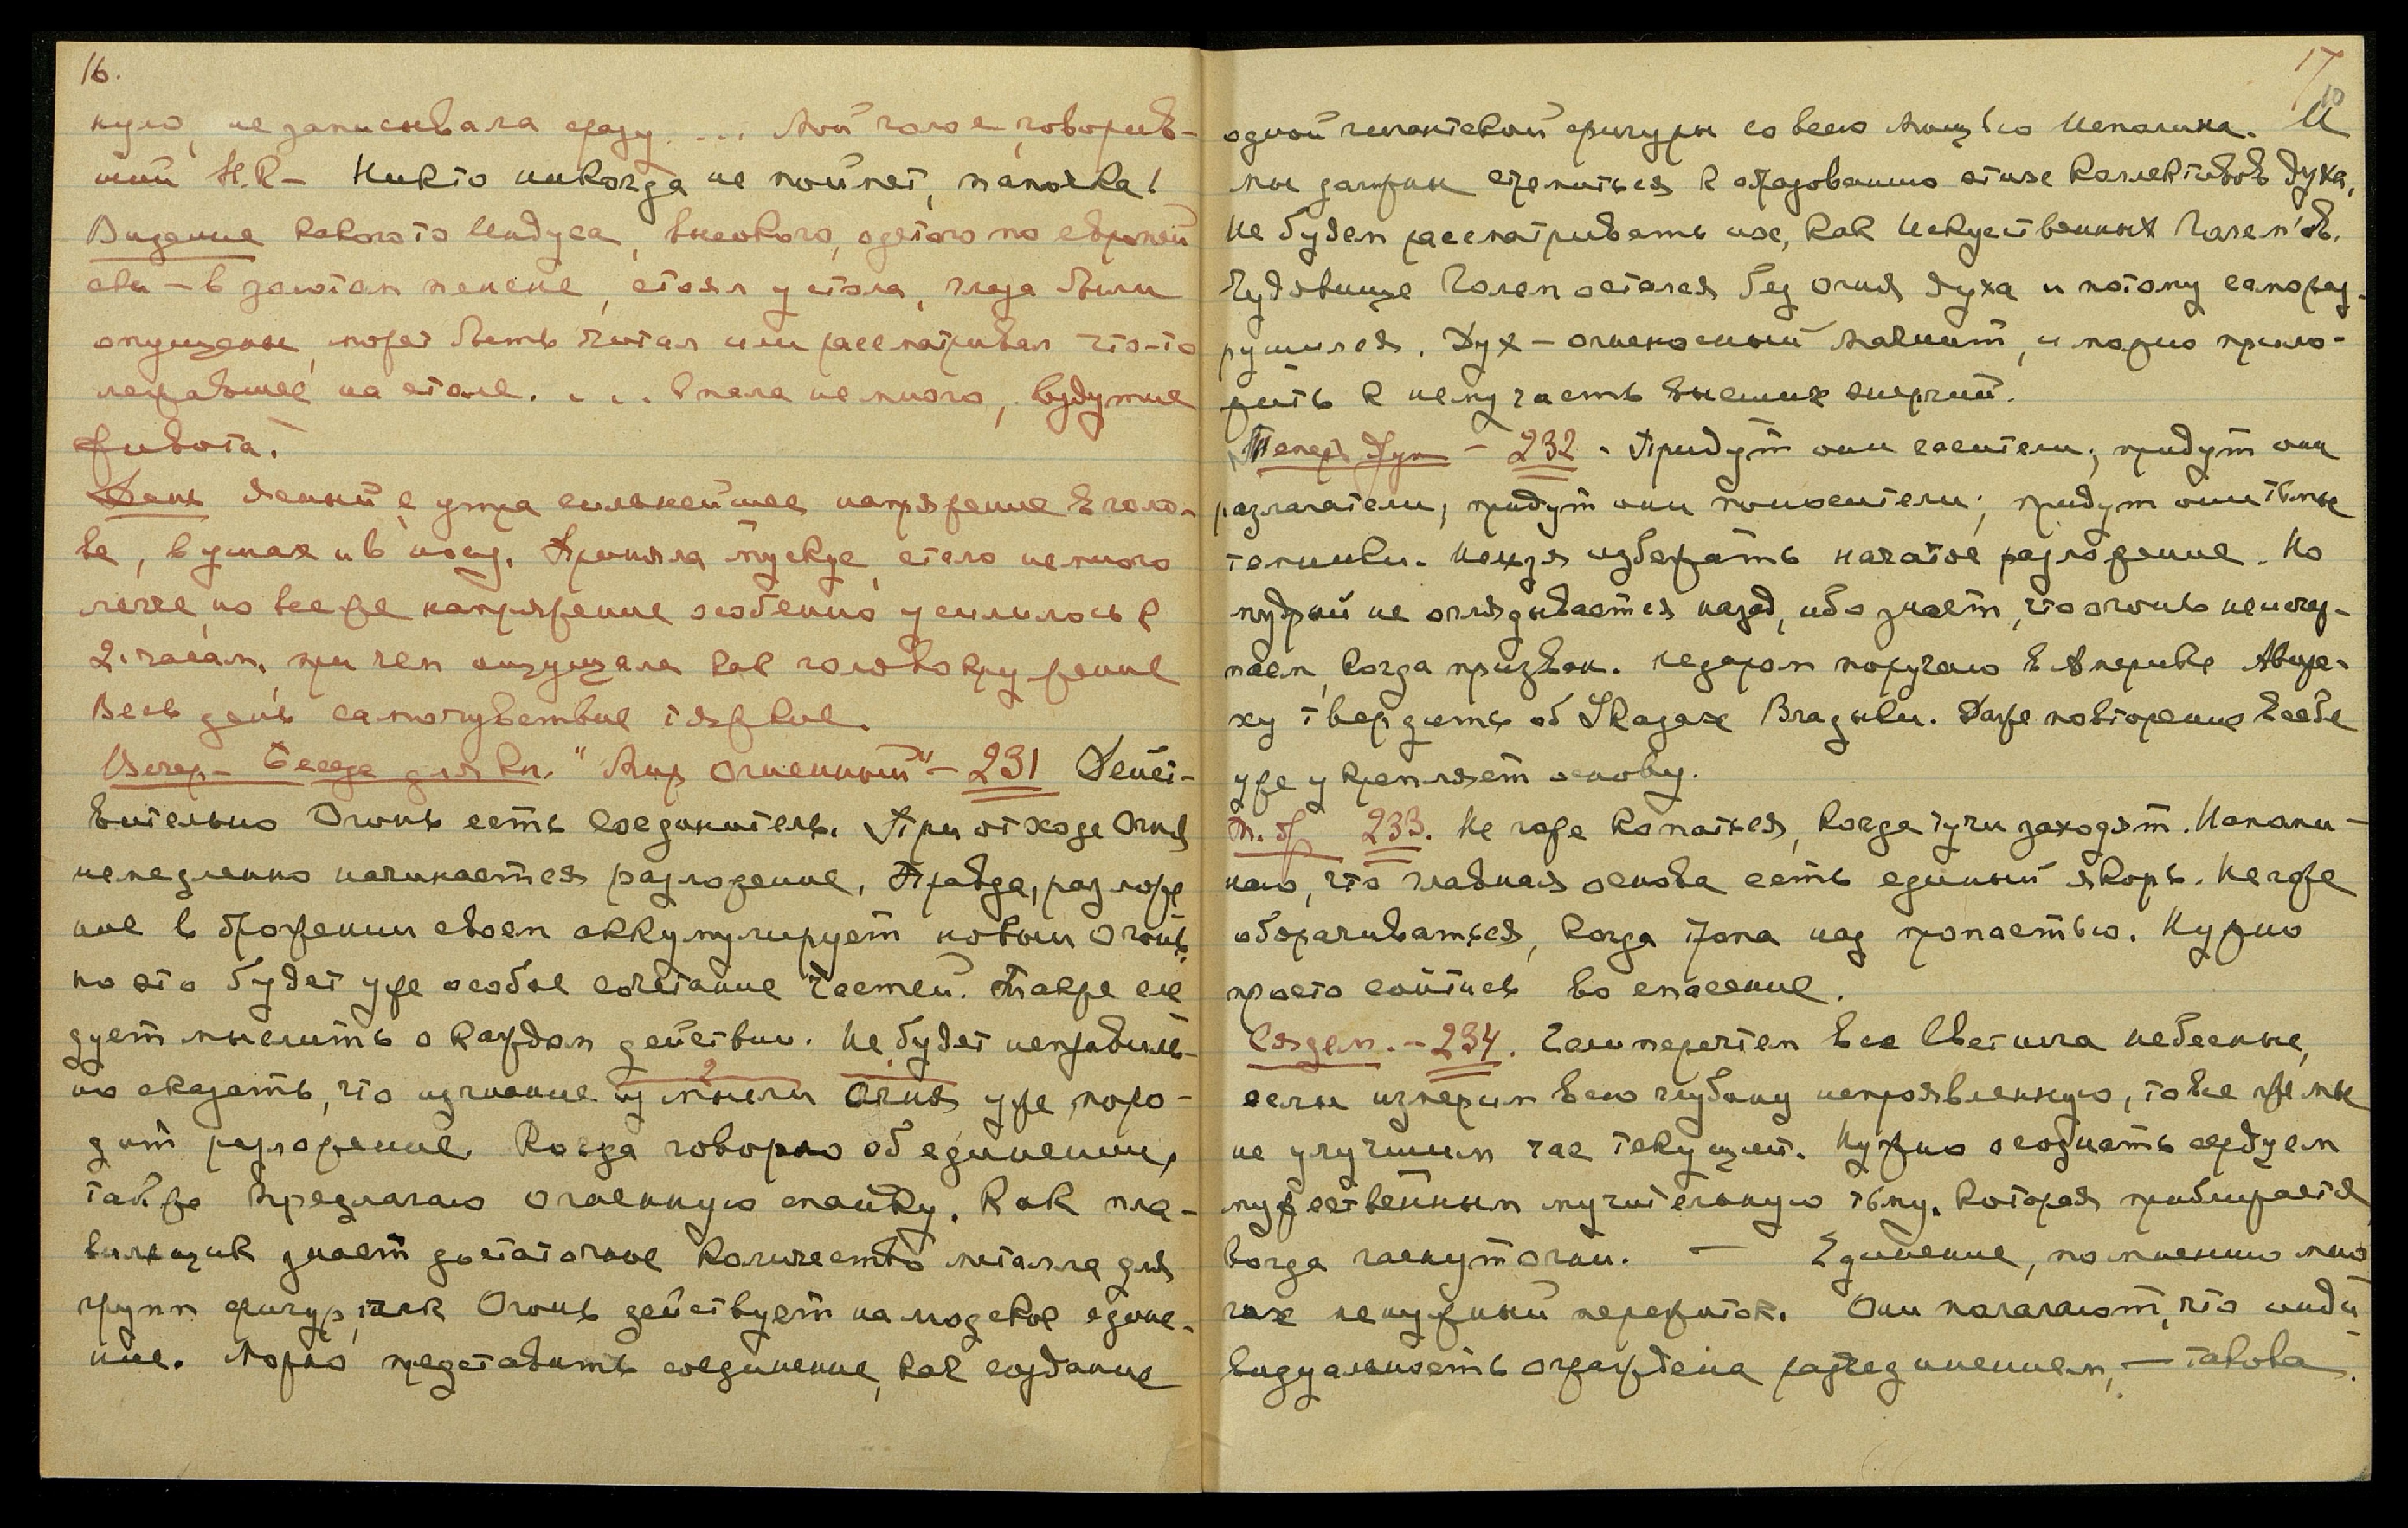 16.
кую, не записывала сразу.... Мой голос, говорив-
ший Н.К – Никто никогда не поймет, папочка!
Видение какого то Индуса, высокого, одетого по европей
ски – в золотом , стоял у стола, глаза были
опущены, может быть читал или рассматривал что-то
лежавшее на столе. . . . Спала не много, вздутие
живота.
День ясный, с утра сильнейшее напряжение в голо-
ве, в ушах и в носу. Приняла мускус, стало немного
легче, но все же напряжение особенно усилилось к
2. часам, при чем ощущала как головокружение
Весь день самочувствие тяжкое.
Вечер – Беседа для кн. "Мир Огненный" – 231 Действ-
вительно Огонь есть соединитель. При отходе Огня
немедленно начинается разложение. Правда, разложе
ние в брожении своем аккумулирует новый Огонь,
но это будет уже особое сочетание частей. Также сле
дует мыслить о каждом действии. Не будет неправиль-
но сказать, что изгнание из мысли Огня уже поро-
дит разложение. Когда говорю об единении,
также предлагаю огненную спайку. Как пла-
вильщик знает достаточное количество металла для
групп фигур, так Огонь действует на людское едине-
ние. Можно представить соединение, как создание
17
10
одной гигантской фигуры со всею мощью Исполина. И
мы должны стремиться к образованию этих коллективов духа,
Не будем рассматривать их, как искусственных Голем'ов.
Чудовище Голем остался без огня духа и потому саморaз-
рушился. Дух – огненосный магнит, и можно прило-
жить к нему часть высших энергий.
 – 232. Придут они гасители; придут они
разлагатели; придут они поносители; придут они тьмы
темники. Нельзя избежать начатое разложение. Но
мудрый не оглядывается назад, ибо знает, что огонь неисчер-
паем, когда призван. Недаром поручаю в Америке Авира-
ху твердить об Указах Владыки. Даже повторение в себе
уже укрепляет основу.
233. Не гоже копаться, когда тучи заходят. Напоми-
наю, что главная основа есть единый якорь. Не гоже
оборачиваться, когда тропа над пропастью. Нужно
просто сойтись во спасение.
Сядем. – 234. Если перечтем все Светила небесные,
если измерим всю глубину непроявленную, то все же мы
не улучшим час текущий. Нужно осознать сердцем
мужественным мучительную тьму, которая приближается
когда гаснут огни. – Единение, по мнению мно
гих ненужный пережиток. Они полагают, что инди
видуальность ограждена разъединением, – такова